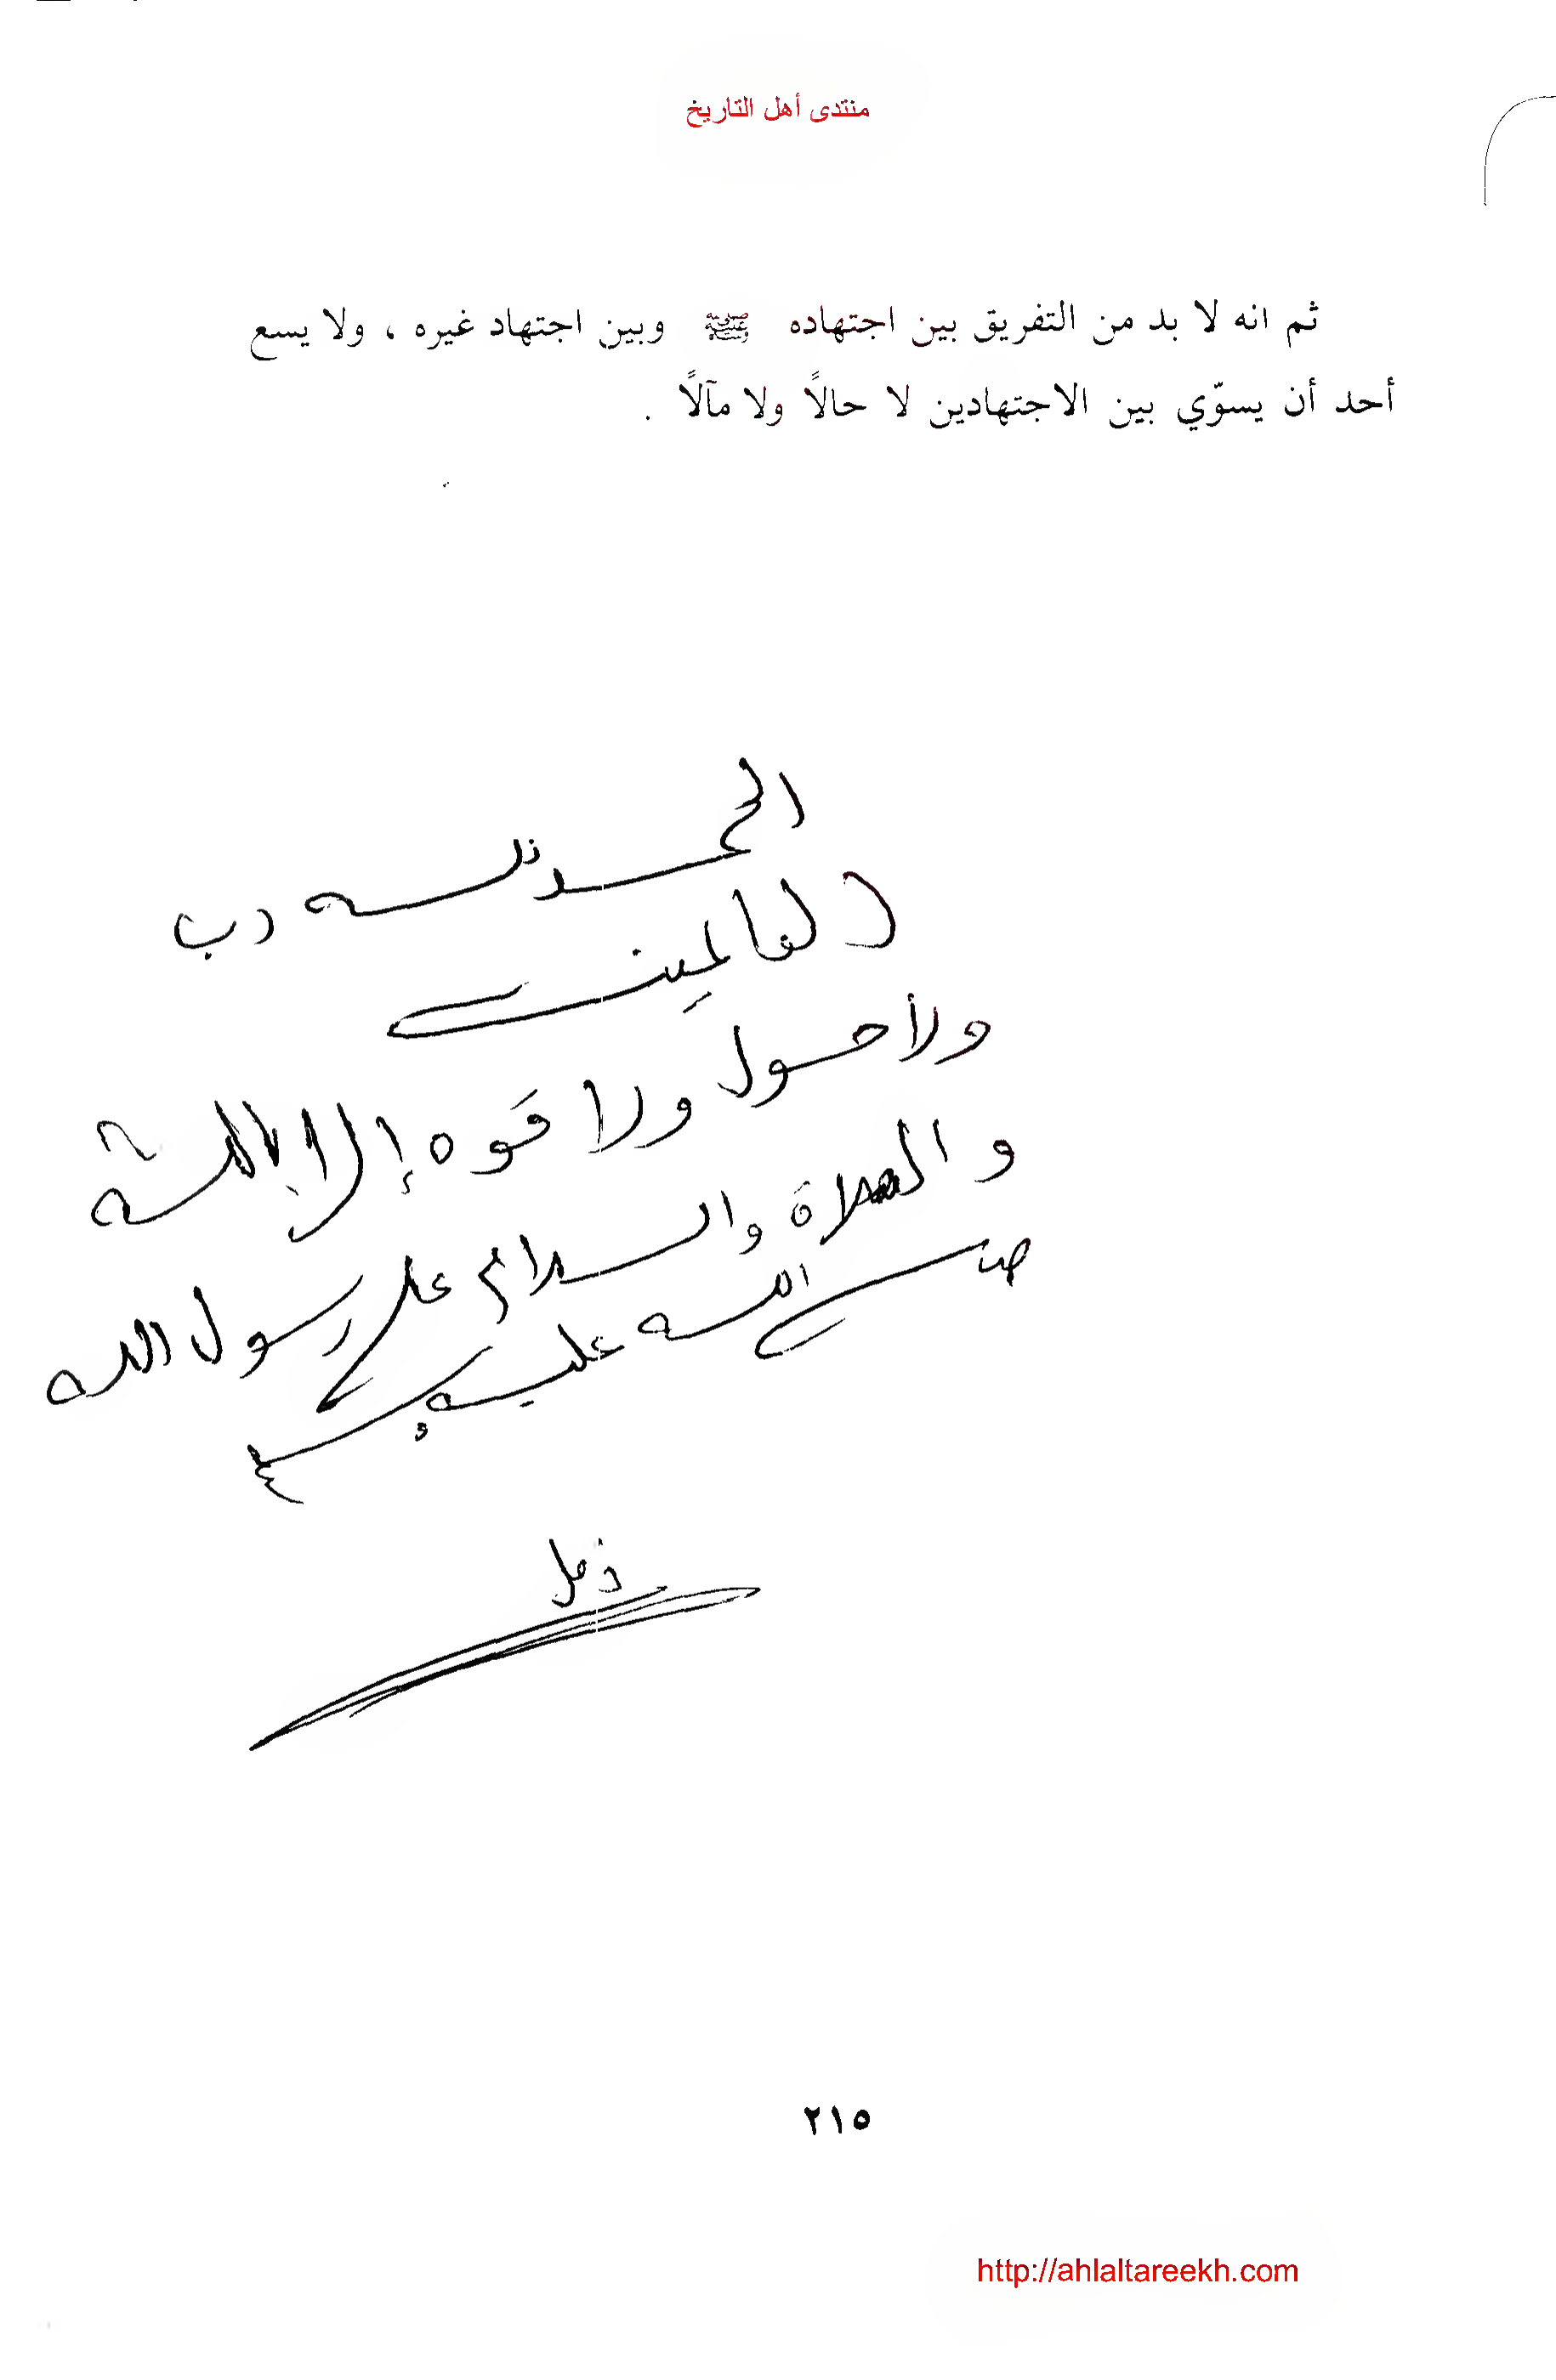 منتدى أهل التاريخ
ثم انه لا بد من التفريق بين اجتهاده ﷺ وبين اجتهاد غيره ، ولا يسع
أحد أن يسوّي بين الاجتهادين لا حالاً ولا مآلاً .
الحمد لله رب
العالمين
ولا حول ولا قوه إلا بالله
والصلاة والسلام على رسول الله
صلى الله عليه وسلم
٢١٥
http://ahlaltareekh.com